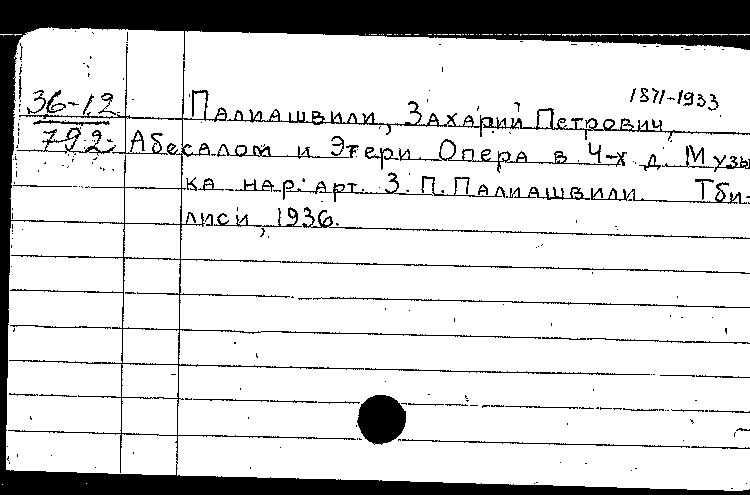 1871-1933
36-12 Палиашвили, Захарий Петрович,
792 Абесалом и Этери. Опера в 4-х д. Музы
ка нар. арт. З. П. Палиашвили. Тби-
лиси, 1936.